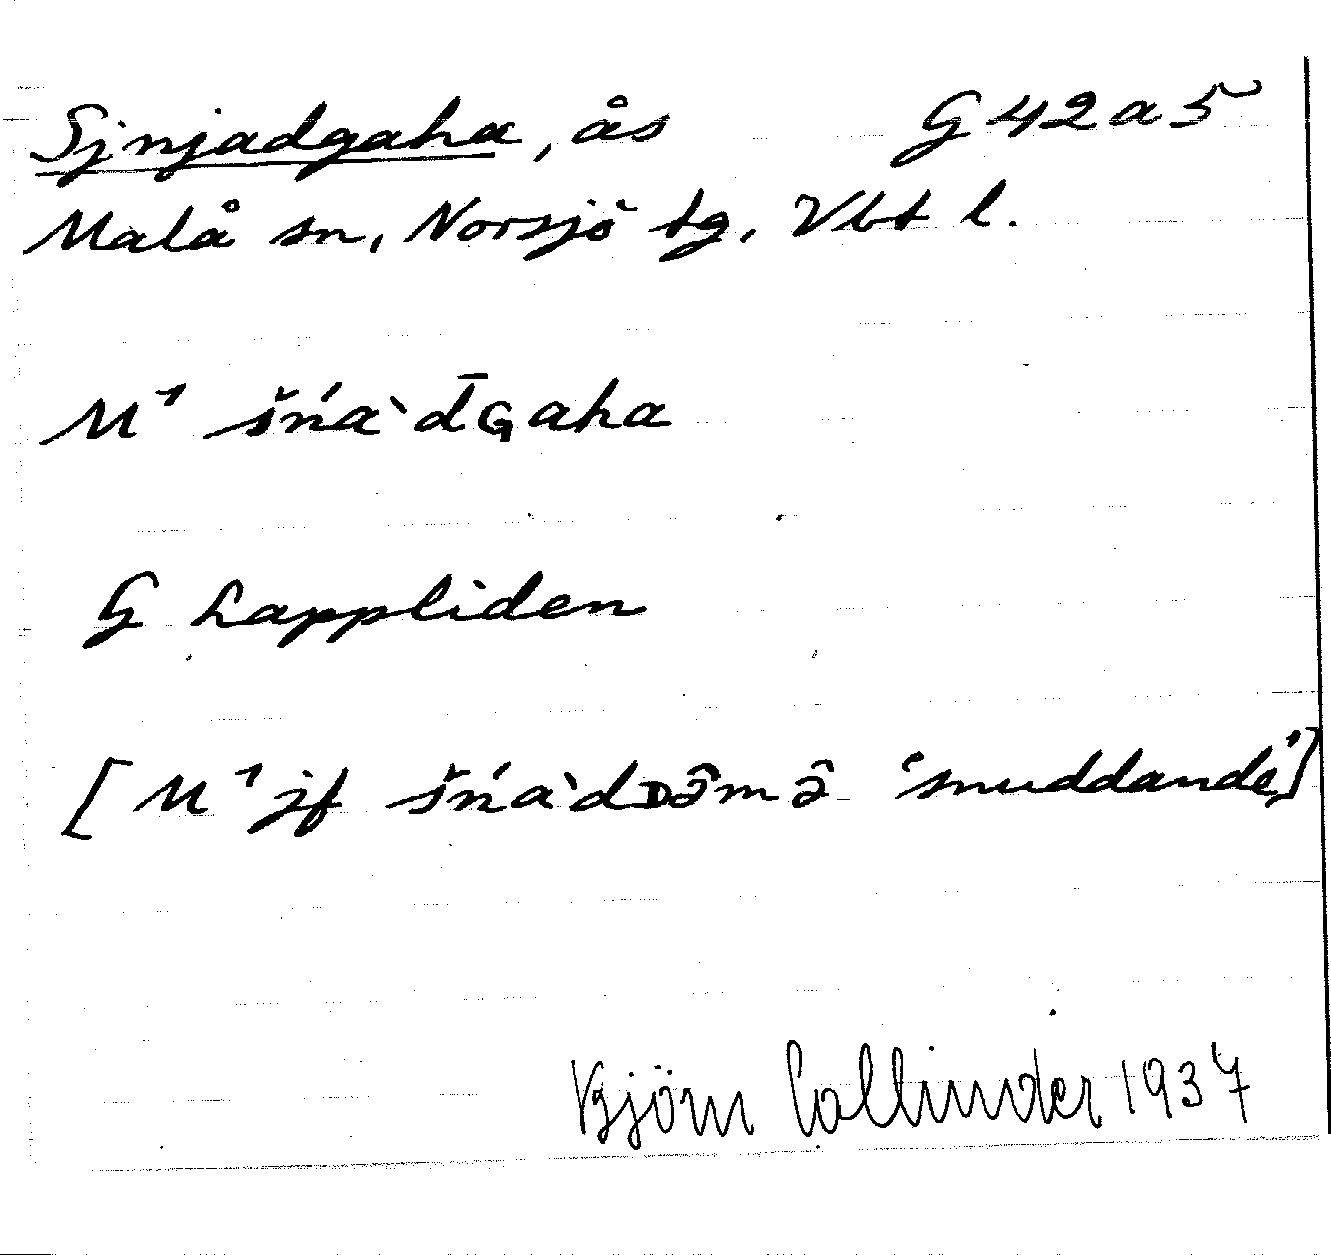 Sjnjadgaha, ås G 42 a 5
Malå sn, Norsjö tg, Vbt l.
M¹ šńa`d̄ɢaha
G Lappliden
[M¹ jf šńa`dᴅə̂mə̂ 'snuddande']
Björn Collinder 1937